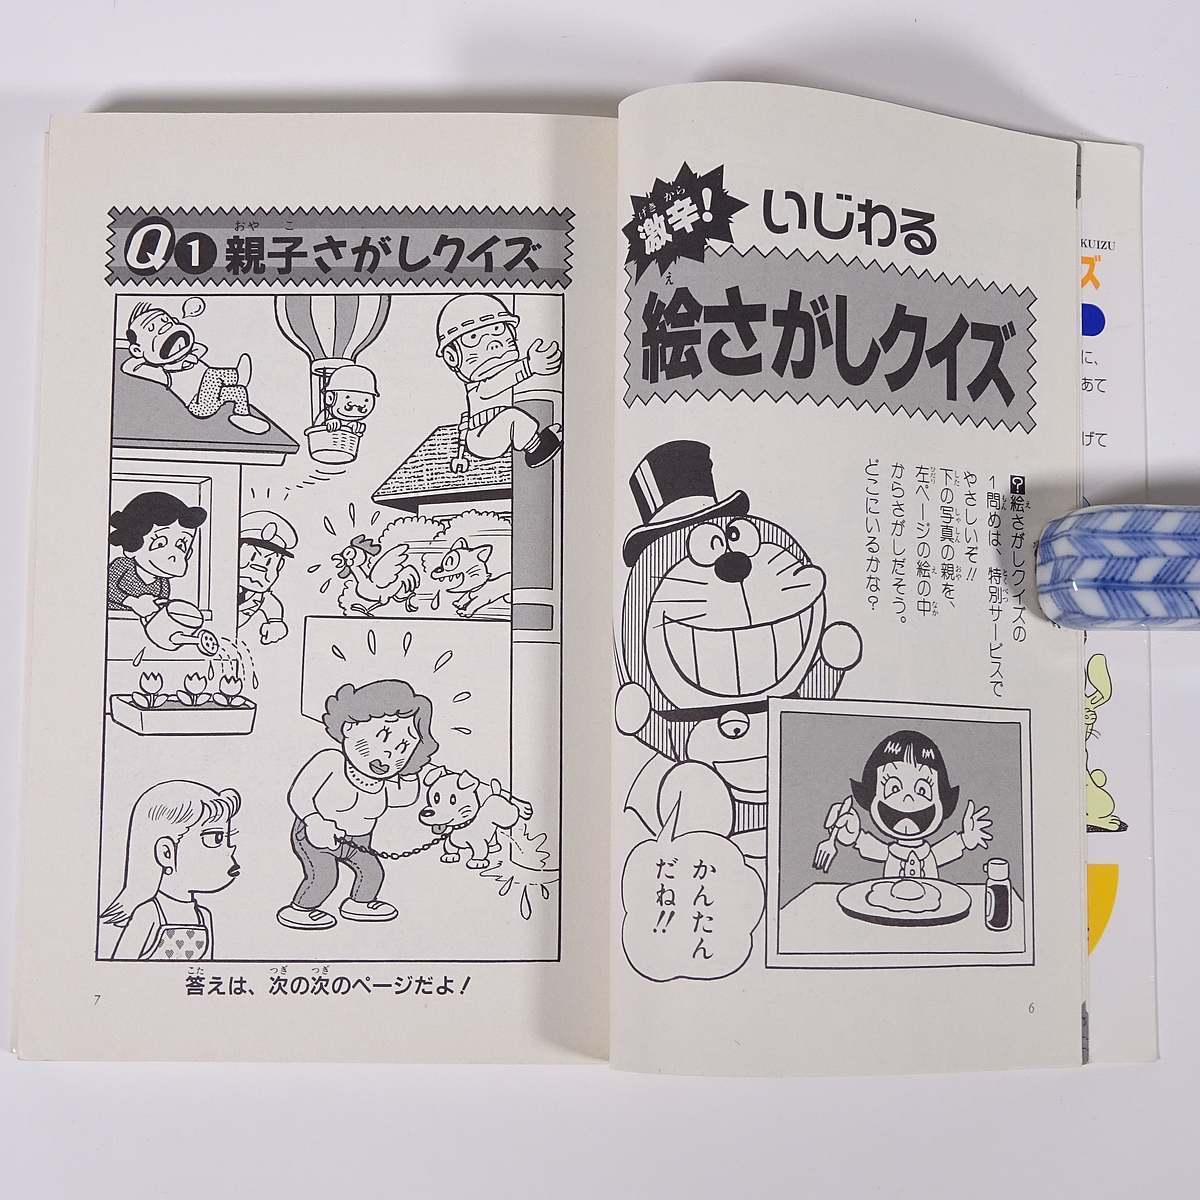 激辛!
げきから
いじわる
絵さがしクイズ
え
?絵さがしクイズの
1問めは、特別サービスで
やさしいぞ!!
下の写真の親を、
左ページの絵の中
からさがしだそう。
どこにいるかな?
かんたん
だね!!
6
Q1親子さがしクイズ
おやこ
答えは、次の次のページだよ!
こた つぎ つぎ
7
KUIZU
ズ
に、
あて
げて